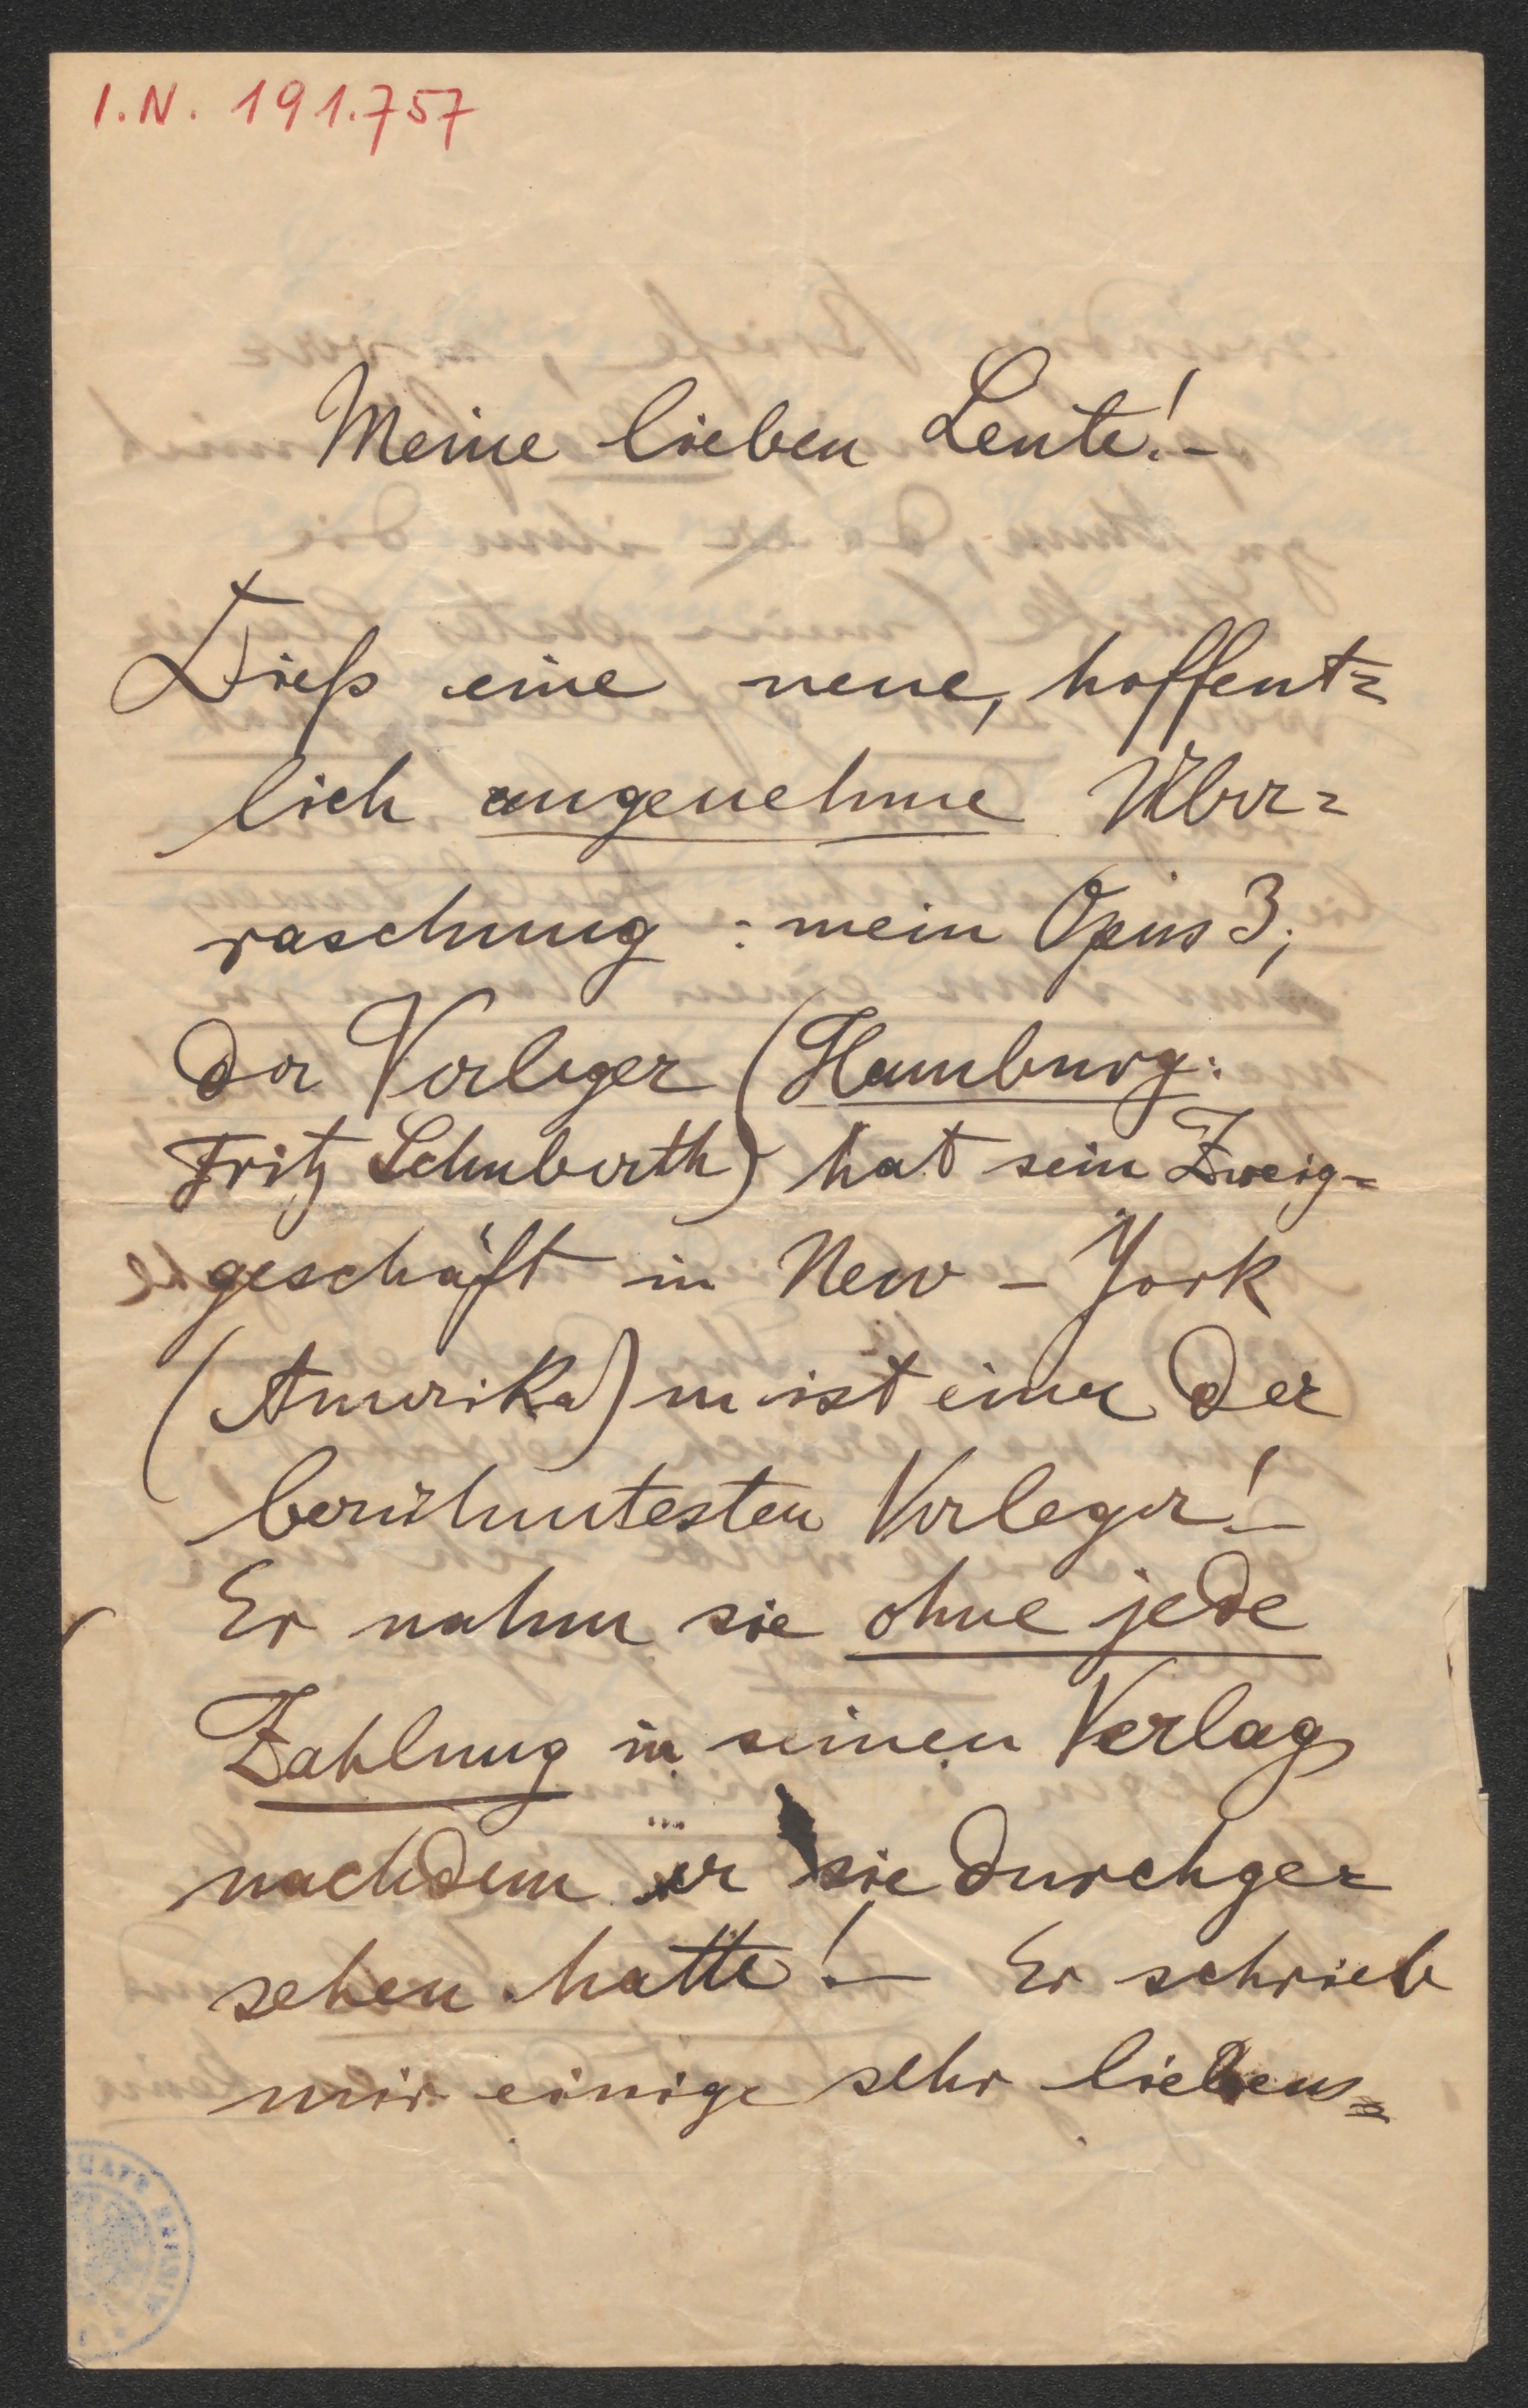 I.N. 191.757
Meine lieben Leute! -
Dieß eine neue, hoffent=
lich angenehme Über=
raschung : mein Opus 3;
der Verleger (Hamburg:
Fritz Schuberth) hat sein Zweig=
geschäft in New - York
(Amerika) u ist einer der
berühmtesten Verleger! -
Er nahm sie ohne jede
Zahlung in seinen Verlag
nachdem er sie durchge=
sehen hatte! - Er schrieb
mir einige sehr liebens=